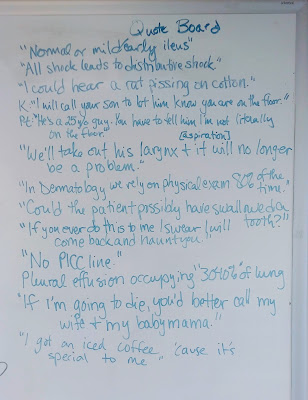 Quote Board
"Normal or mild early ileus"
"All shock leads to distributive shock."
"I could hear a rat pissing on cotton."
K: "I will call your son to let him know you are on the floor."
Pt: "He's a 25 y/o guy. You have to tell him I'm not literally
on the floor."
[aspiration]
"We'll take out his larynx + it will no longer
be a problem."
"In Dermatology we rely on physical exam 8% of the
time."
"Could the patient possibly have swallowed a
tooth?"
"If you ever do this to me I swear I will
come back and haunt you."
"No PICC line."
Pleural effusion occupying "30-40%" of lung
"If I'm going to die, you'd better call my
wife + my baby mama."
"I got an iced coffee, 'cause it's
special to me"